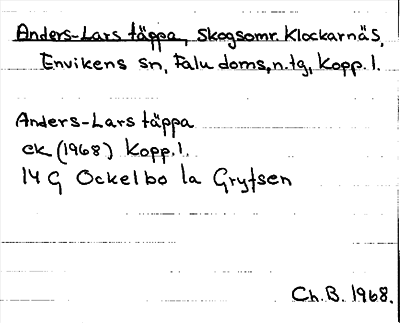 Anders-Lars täppa, Skogsomr. Klockarnäs,
Envikens sn, Falu doms.n.tg, Kopp.l.
Anders-Lars täppa
ek (1968) Kopp.l.
14 G Ockelbo 1a Grytsen
Ch.B. 1968.